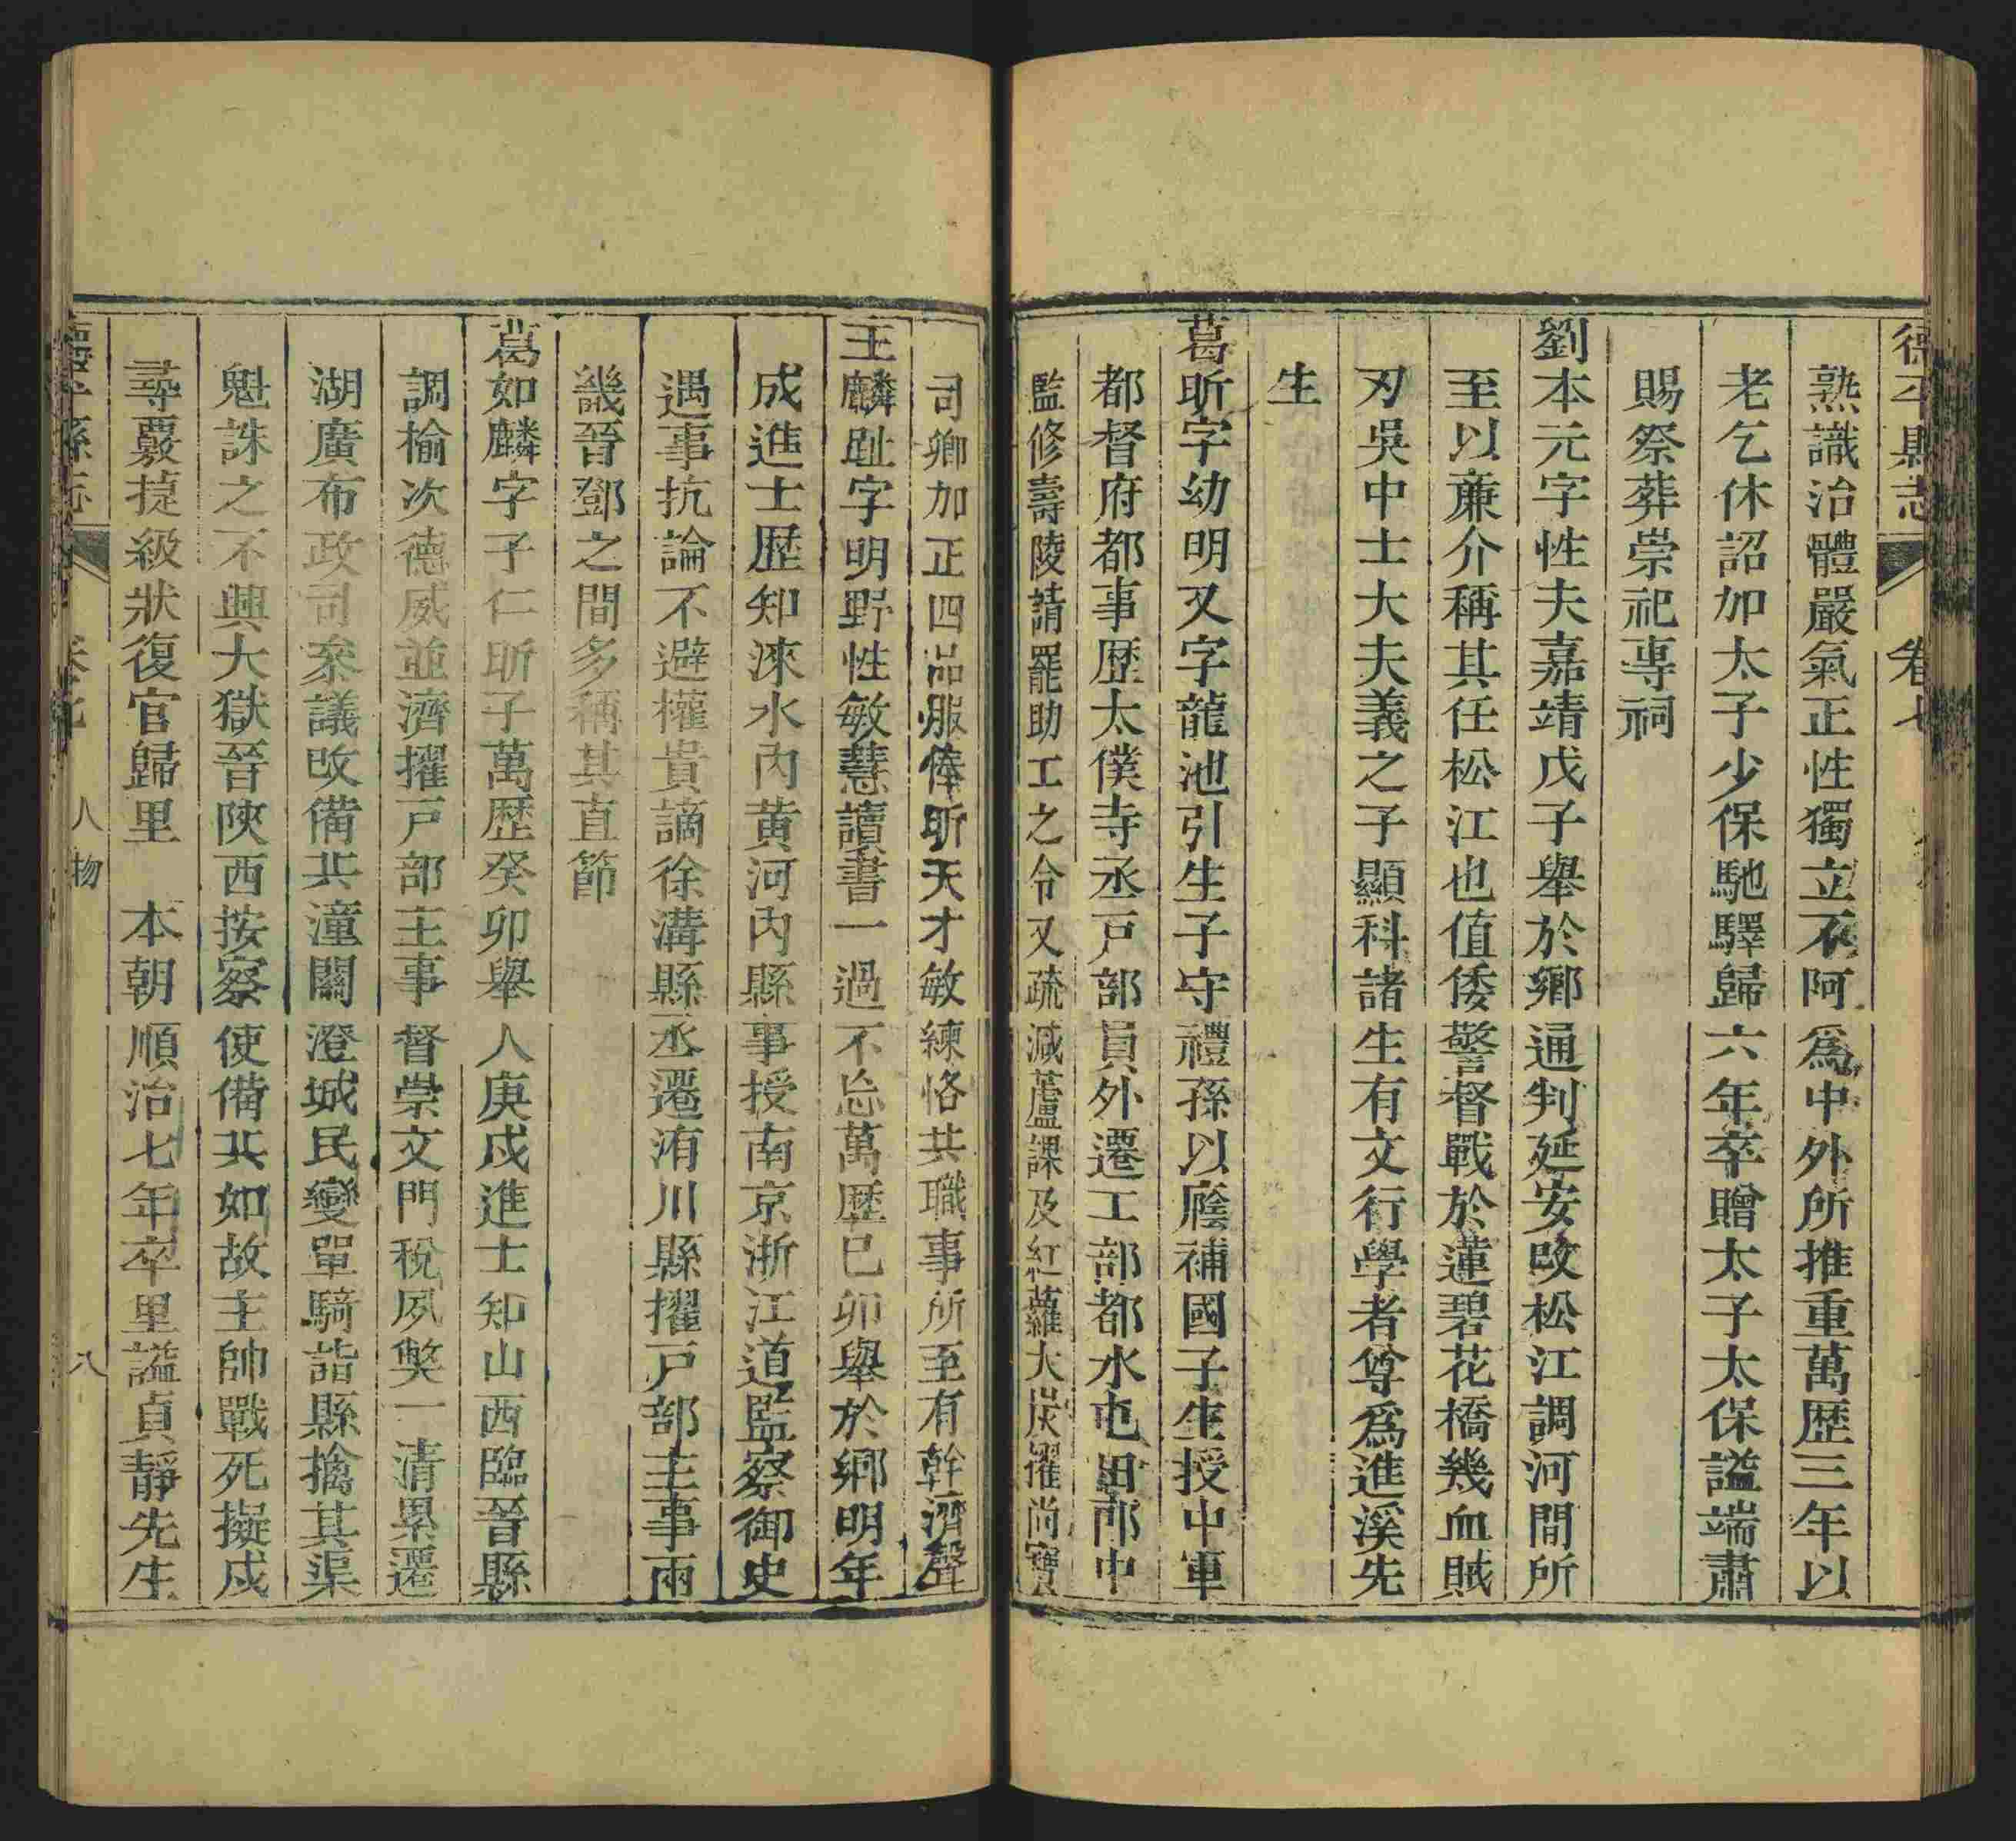 德平縣志 卷七
熟識治體嚴氣正性獨立不阿爲中外所推重萬歷三年以
老乞休詔加太子少保馳驛歸六年卒贈太子太保謚端肅
賜祭葬崇祀專祠
劉本元字性夫嘉靖戊子舉於鄉通判延安改松江調河間所
至以亷介稱其任松江也值倭警督戰於蓮碧花橋幾血賊
刃吳中士大夫義之子顯科諸生有文行學者尊爲進溪先
生
葛昕字幼明又字龍池引生子守禮孫以廕補國子生授中軍
都督府都事歷太僕寺丞戸部員外遷工部都水屯田郎中
監修壽陵請罷助工之令又疏減蘆課及紅蘿大炭擢尚寶
司卿加正四品服俸昕天才敏練恪共職事所至有幹濟聲
王麟趾字明野性敏慧讀書一過不忘萬歷已卯舉於鄉明年
成進士歷知淶水內黃河內縣事授南京浙江道監察御史
遇事抗論不避權貴謫徐溝縣丞遷洧川縣擢戸部主事兩
畿晉鄧之間多稱其直節
葛如麟字子仁昕子萬歷癸卯舉人庚戍進士知山西臨晉縣
調榆次德威並濟擢戸部主事督崇文門稅夙獘一清累遷
湖廣布政司叅議改備兵潼關澄城民變單騎詣縣擒其渠
魁誅之不興大獄晉陝西按察使備兵如故主帥戰死擬戍
尋覈㨗級狀復官歸里　本朝順治七年卒里謚貞靜先生
德平縣志 卷七 人物 八